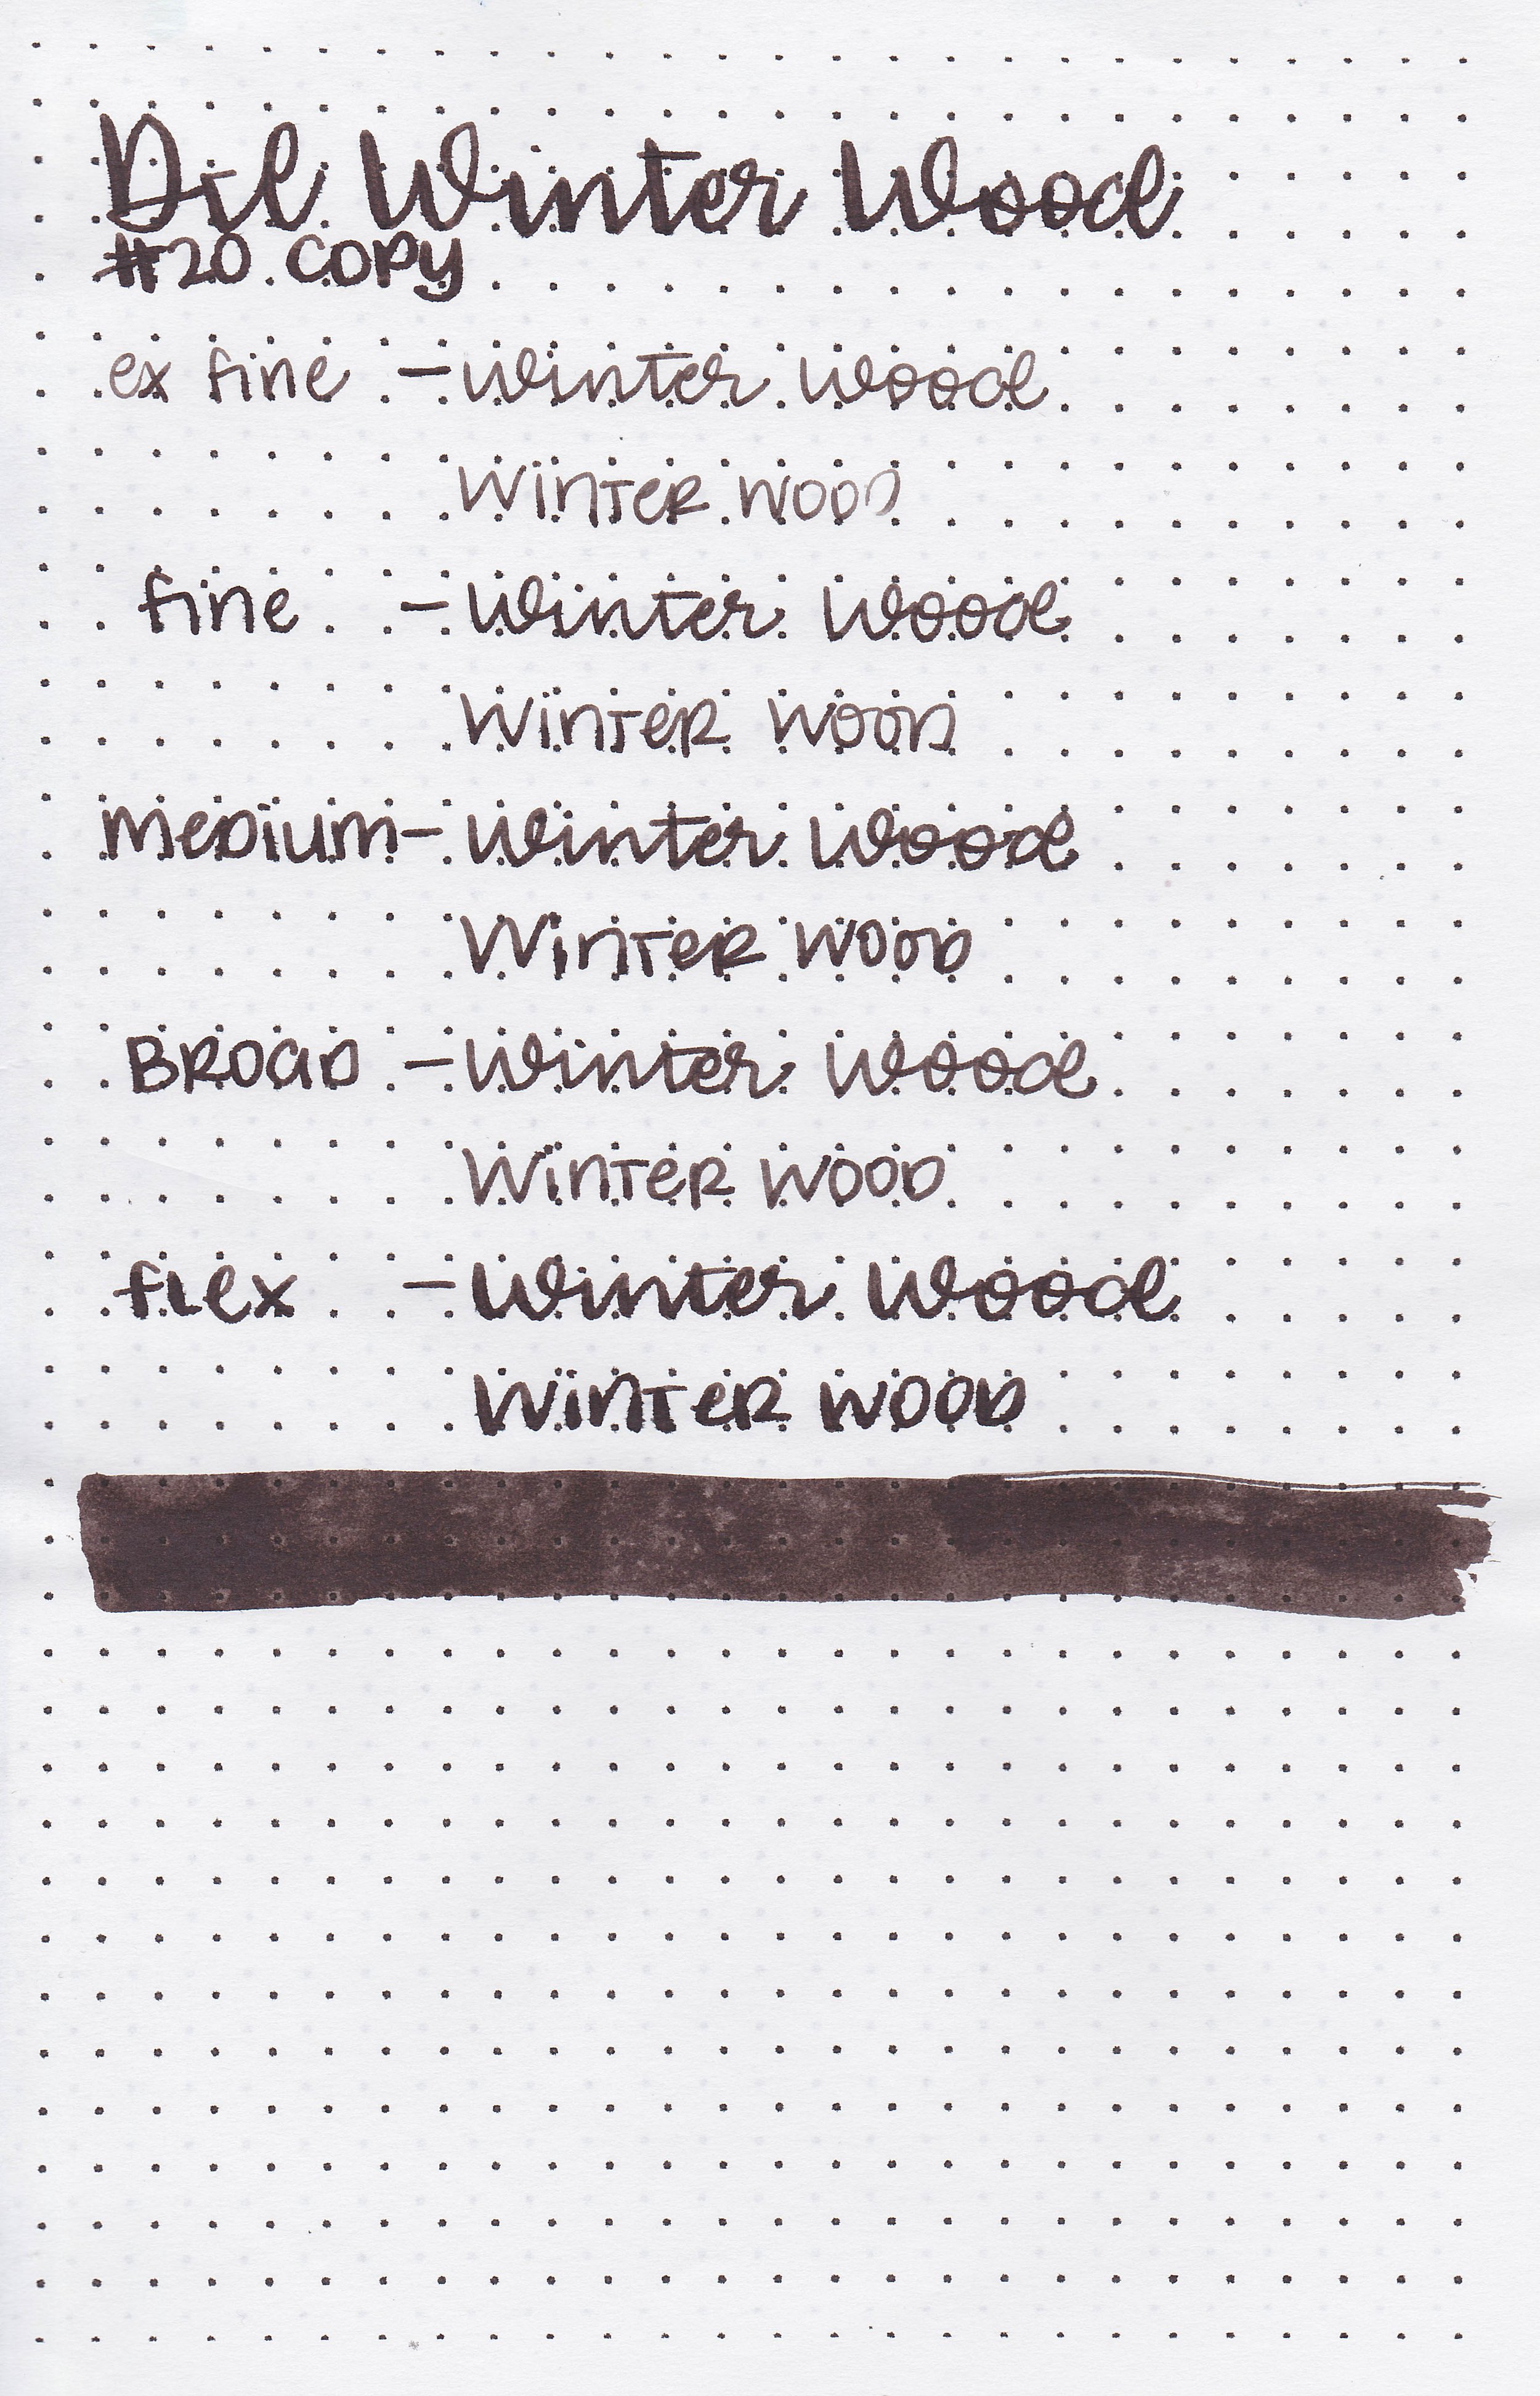 Dil Winter Wood
#20 copy
ex fine - Winter Wood
Winter Wood
fine - Winter Wood
Winter Wood
Medium - Winter Wood
Winter Wood
Broad - Winter Wood
Winter Wood
flex - Winter Wood
Winter Wood